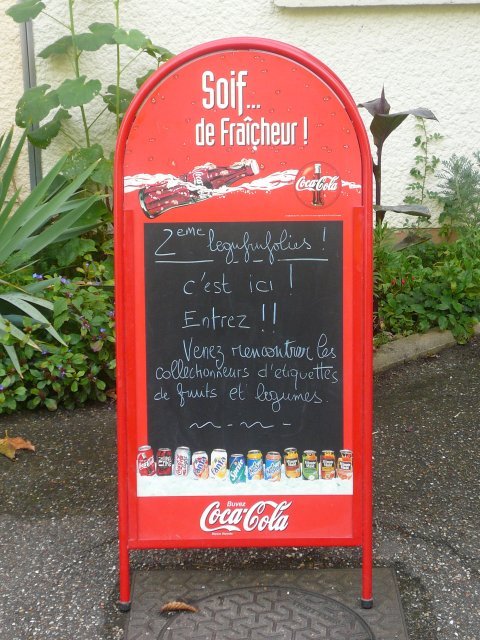 Soif...
de Fraîcheur !
Coca-Cola
2eme legufrufolies !
c'est ici !
Entrez !!
Venez rencontrer les
collectionneurs d'etiquettes
de fruits et legumes.
Buvez
Coca-Cola